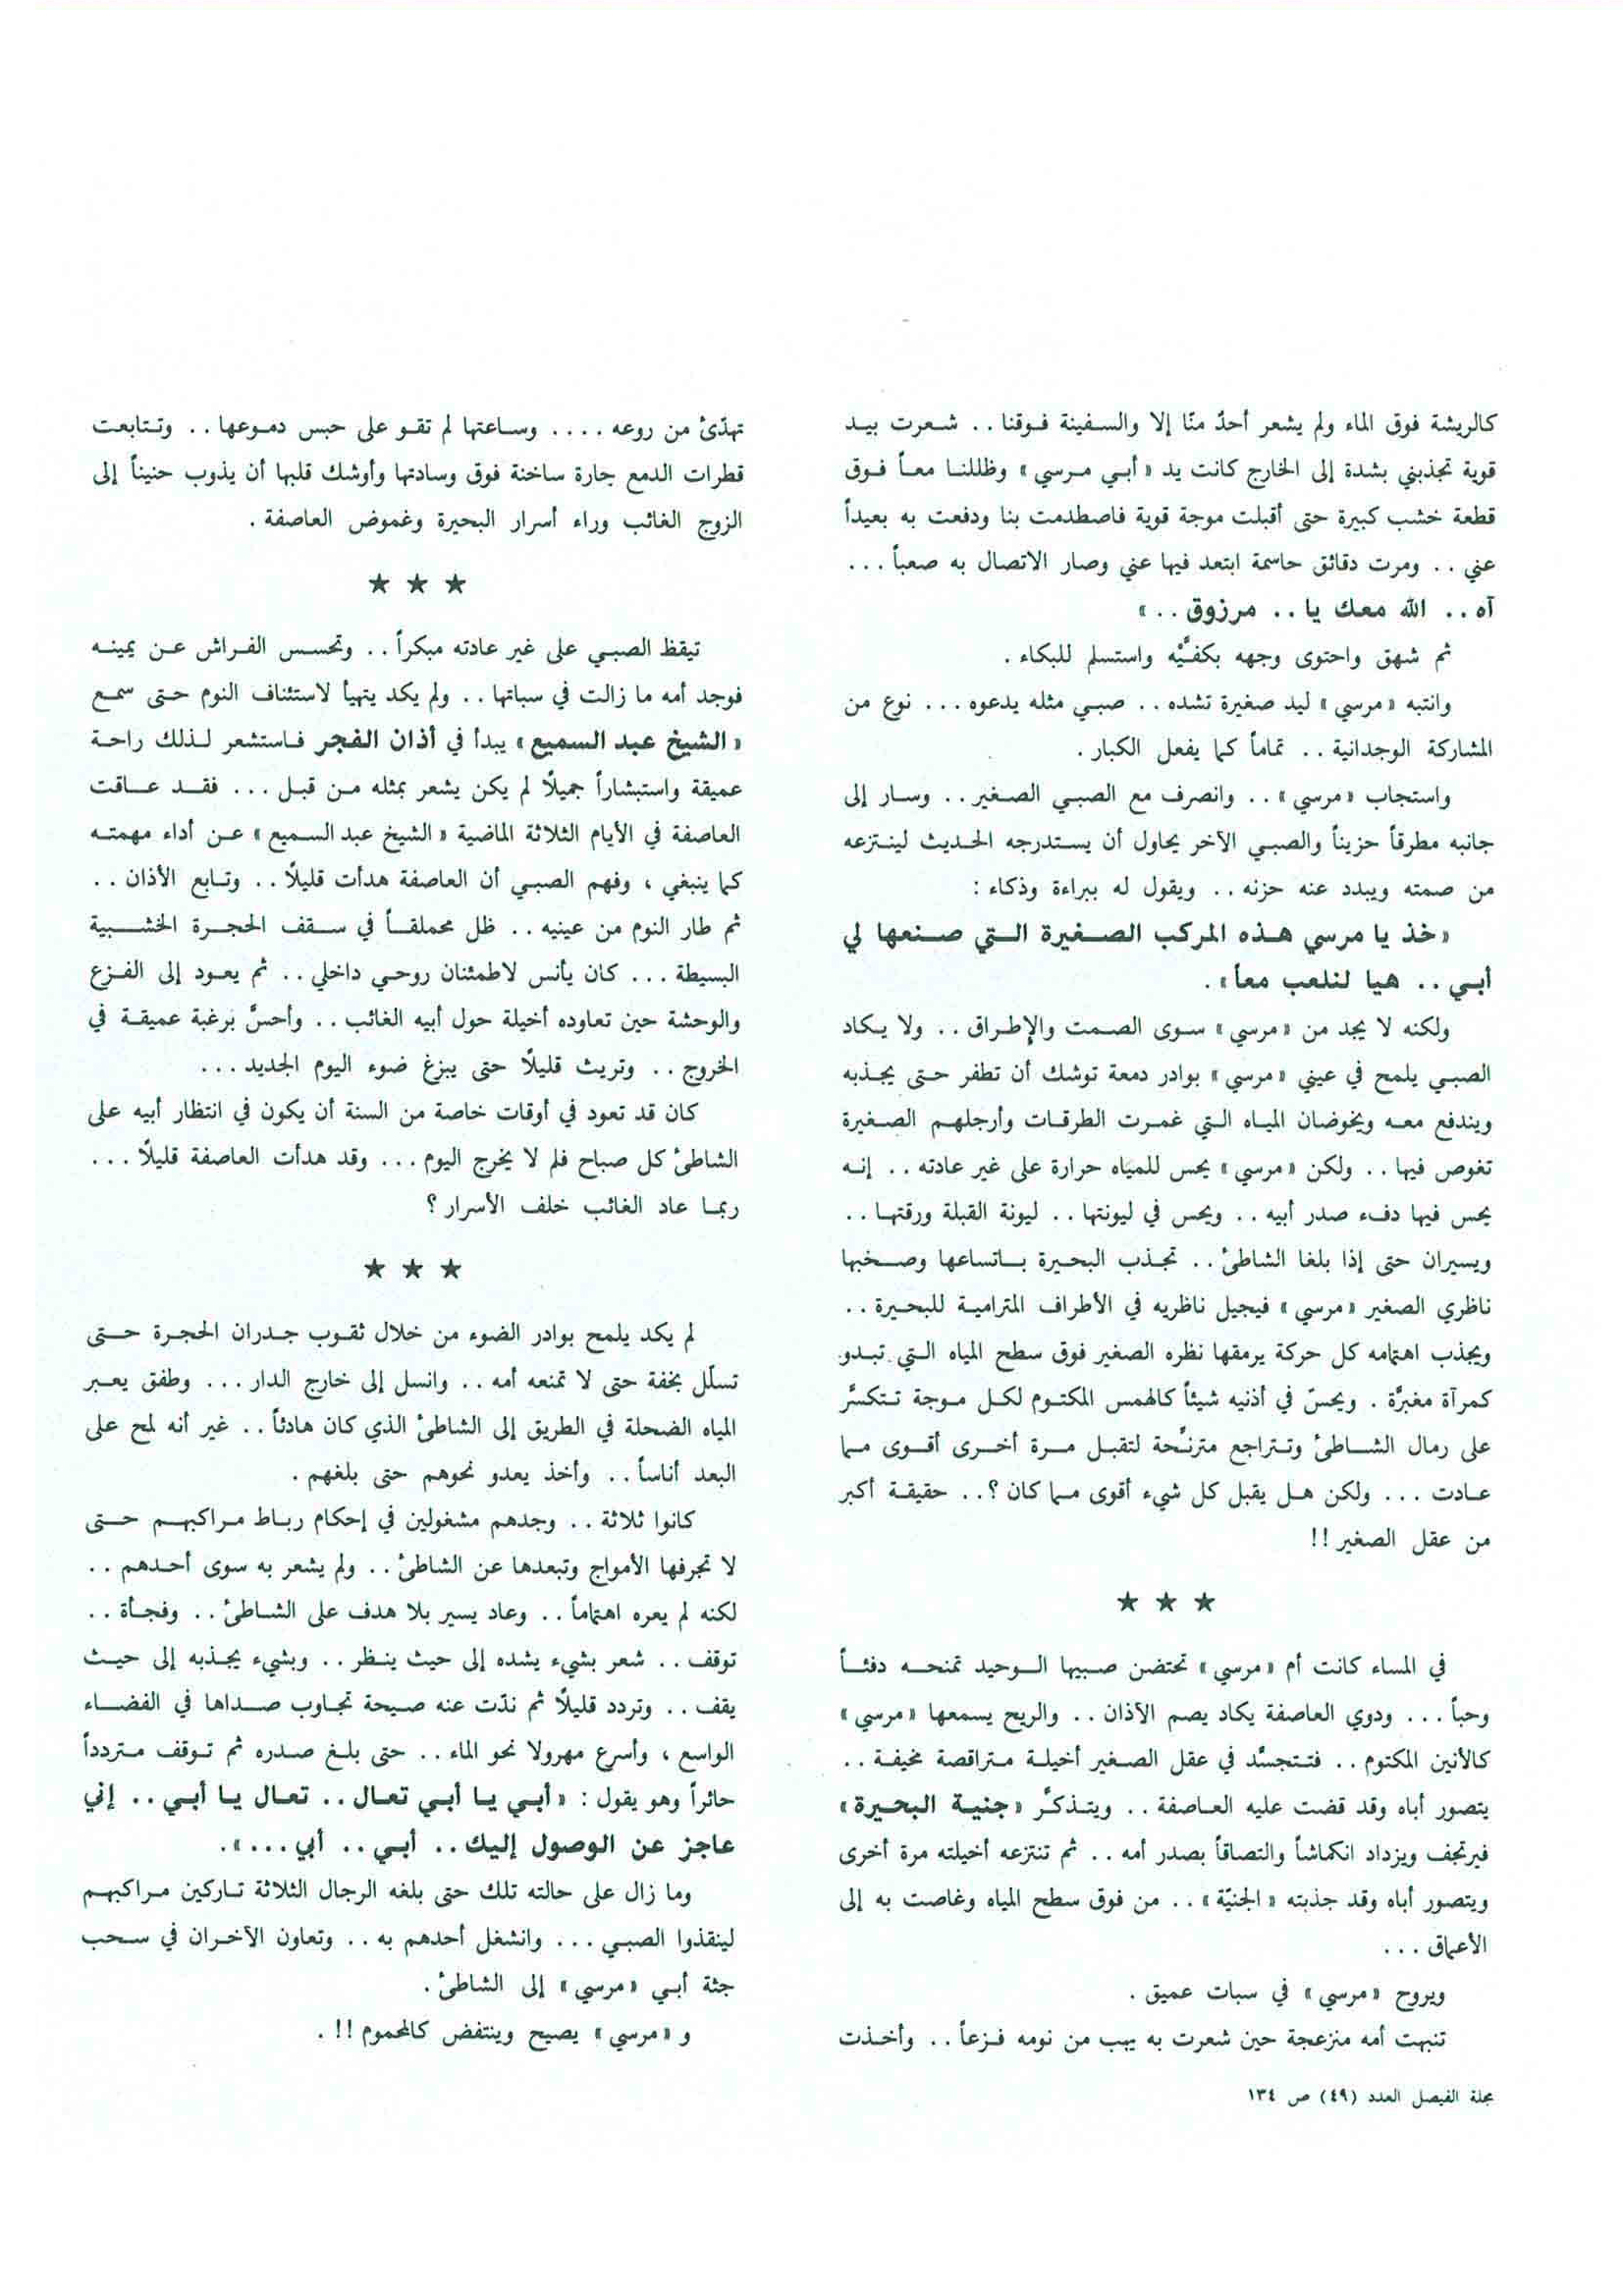 كالريشة فوق الماء ولم يشعر أحدٌ منّا إلا والسفينة فوقنا.. شعرت بيد
قوية تجذبني بشدة إلى الخارج كانت يد «أبي مرسي» وظللنا معاً فوق
قطعة خشب كبيرة حتى أقبلت موجة قوية فاصطدمت بنا ودفعت به بعيداً
عني.. ومرت دقائق حاسمة ابتعد فيها عني وصار الاتصال به صعباً...
آه.. الله معك يا.. مرزوق..»
ثم شهق واحتوى وجهه بكفيَّه واستسلم للبكاء.
وانتبه «مرسي» ليد صغيرة تشده.. صبي مثله يدعوه... نوع من
المشاركة الوجدانية.. تماماً كما يفعل الكبار.
واستجاب «مرسي».. وانصرف مع الصبي الصغير.. وسار إلى
جانبه مطرقاً حزيناً والصبي الآخر يحاول أن يستدرجه الحديث لينتزعه
من صمته ويبدد عنه حزنه.. ويقول له ببراءة وذكاء:
«خذ يا مرسي هذه المركب الصغيرة التي صنعها لي
أبي.. هيا لنلعب معاً».
ولكنه لا يجد من «مرسي» سوى الصمت والإطراق.. ولا يكاد
الصبي يلمح في عيني «مرسي» بوادر دمعة توشك أن تطفر حتى يجذبه
ويندفع معه ويخوضان المياه التي غمرت الطرقات وأرجلهم الصغيرة
تغوص فيها.. ولكن «مرسي» يحس للمياه حرارة على غير عادته.. إنه
يحس فيها دفء صدر أبيه.. ويحس في ليونتها.. ليونة القبلة ورقتها..
ويسيران حتى إذا بلغا الشاطئ.. تجذب البحيرة باتساعها وصخبها
ناظري الصغير «مرسي» فيجيل ناظريه في الأطراف المترامية للبحيرة..
ويجذب اهتمامه كل حركة يرمقها نظره الصغير فوق سطح المياه التي تبدو
كمرآة مغبرَّة. ويحسّ في أذنيه شيئاً كالهمس المكتوم لكل موجة تتكسَّر
على رمال الشاطئ وتتراجع مترنِّحة لتقبل مرة أخرى أقوى مما
عادت... ولكن هل يقبل كل شيء أقوى مما كان؟.. حقيقة أكبر
من عقل الصغير!!
★ ★ ★
في المساء كانت أم «مرسي» تحتضن صبيها الوحيد تمنحه دفئاً
وحباً... ودوي العاصفة يكاد يصم الآذان.. والريح يسمعها «مرسي»
كالأنين المكتوم.. فتتجسَّد في عقل الصغير أخيلة متراقصة مخيفة..
يتصور أباه وقد قضت عليه العاصفة.. ويتذكَّر «جنية البحيرة»
فيرتجف ويزداد انكماشاً والتصاقاً بصدر أمه.. ثم تنتزعه أخيلته مرة أخرى
ويتصور أباه وقد جذبته «الجنيّة».. من فوق سطح المياه وغاصت به إلى
الأعماق...
ويروح «مرسي» في سبات عميق.
تنبهت أمه منزعجة حين شعرت به يهب من نومه فزعاً.. وأخذت
تهدّئ من روعه.... وساعتها لم تقو على حبس دموعها.. وتتابعت
قطرات الدمع جارة ساخنة فوق وسادتها وأوشك قلبها أن يذوب حنيناً إلى
الزوج الغائب وراء أسرار البحيرة وغموض العاصفة.
★ ★ ★
تيقظ الصبي على غير عادته مبكراً.. وتحسس الفراش عن يمينه
فوجد أمه ما زالت في سباتها.. ولم يكد يتهيأ لاستئناف النوم حتى سمع
«الشيخ عبد السميع» يبدأ في أذان الفجر فاستشعر لذلك راحة
عميقة واستبشاراً جميلًا لم يكن يشعر بمثله من قبل... فقد عاقت
العاصفة في الأيام الثلاثة الماضية «الشيخ عبد السميع» عن أداء مهمته
كما ينبغي، وفهم الصبي أن العاصفة هدأت قليلًا.. وتابع الأذان..
ثم طار النوم من عينيه.. ظل محملقاً في سقف الحجرة الخشبية
البسيطة... كان يأنس لاطمئنان روحي داخلي.. ثم يعود إلى الفزع
والوحشة حين تعاوده أخيلة حول أبيه الغائب.. وأحسَّ برغبة عميقة في
الخروج.. وتريث قليلًا حتى يبزغ ضوء اليوم الجديد...
كان قد تعود في أوقات خاصة من السنة أن يكون في انتظار أبيه على
الشاطئ كل صباح فلم لا يخرج اليوم... وقد هدأت العاصفة قليلًا...
ربما عاد الغائب خلف الأسرار؟
★ ★ ★
لم يكد يلمح بوادر الضوء من خلال ثقوب جدران الحجرة حتى
تسلّل بخفة حتى لا تمنعه أمه.. وانسل إلى خارج الدار... وطفق يعبر
المياه الضحلة في الطريق إلى الشاطئ الذي كان هادئاً.. غير أنه لمح على
البعد أناساً.. وأخذ يعدو نحوهم حتى بلغهم.
كانوا ثلاثة.. وجدهم مشغولين في إحكام رباط مراكبهم حتى
لا تجرفها الأمواج وتبعدها عن الشاطئ.. ولم يشعر به سوى أحدهم..
لكنه لم يعره اهتماماً.. وعاد يسير بلا هدف على الشاطئ.. وفجأة..
توقف.. شعر بشيء يشده إلى حيث ينظر.. وبشيء يجذبه إلى حيث
يقف.. وتردد قليلًا ثم ندّت عنه صيحة تجاوب صداها في الفضاء
الواسع، وأسرع مهرولا نحو الماء.. حتى بلغ صدره ثم توقف متردداً
حائراً وهو يقول: «أبي يا أبي تعال.. تعال يا أبي.. إني
عاجز عن الوصول إليك.. أبي.. أبي...».
وما زال على حالته تلك حتى بلغه الرجال الثلاثة تاركين مراكبهم
لينقذوا الصبي... وانشغل أحدهم به.. وتعاون الآخران في سحب
جثة أبي «مرسي» إلى الشاطئ.
و«مرسي» يصيح وينتفض كالمحموم!!.
مجلة الفيصل العدد (٤٩) ص ١٣٤